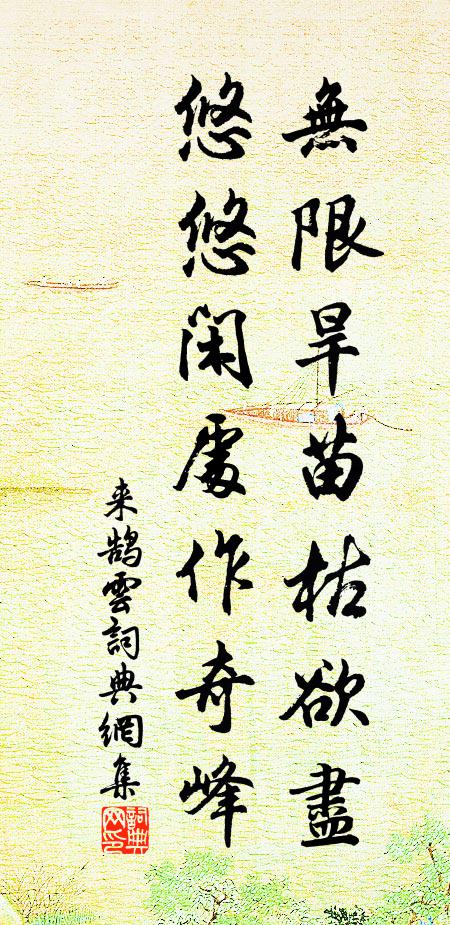 無限旱苗枯欲盡
悠悠閑處作奇峰
来鹄雲詞典網集
詞典网印